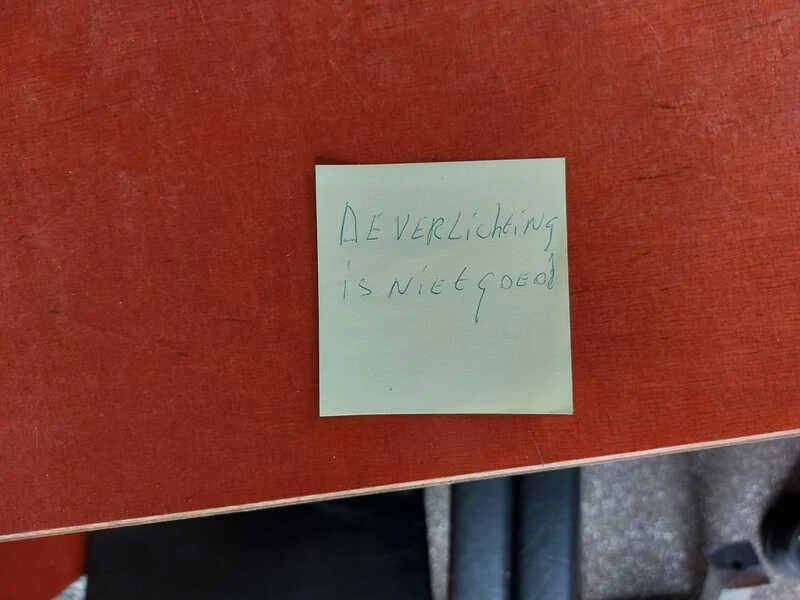 DE VERLichting
is niet goed